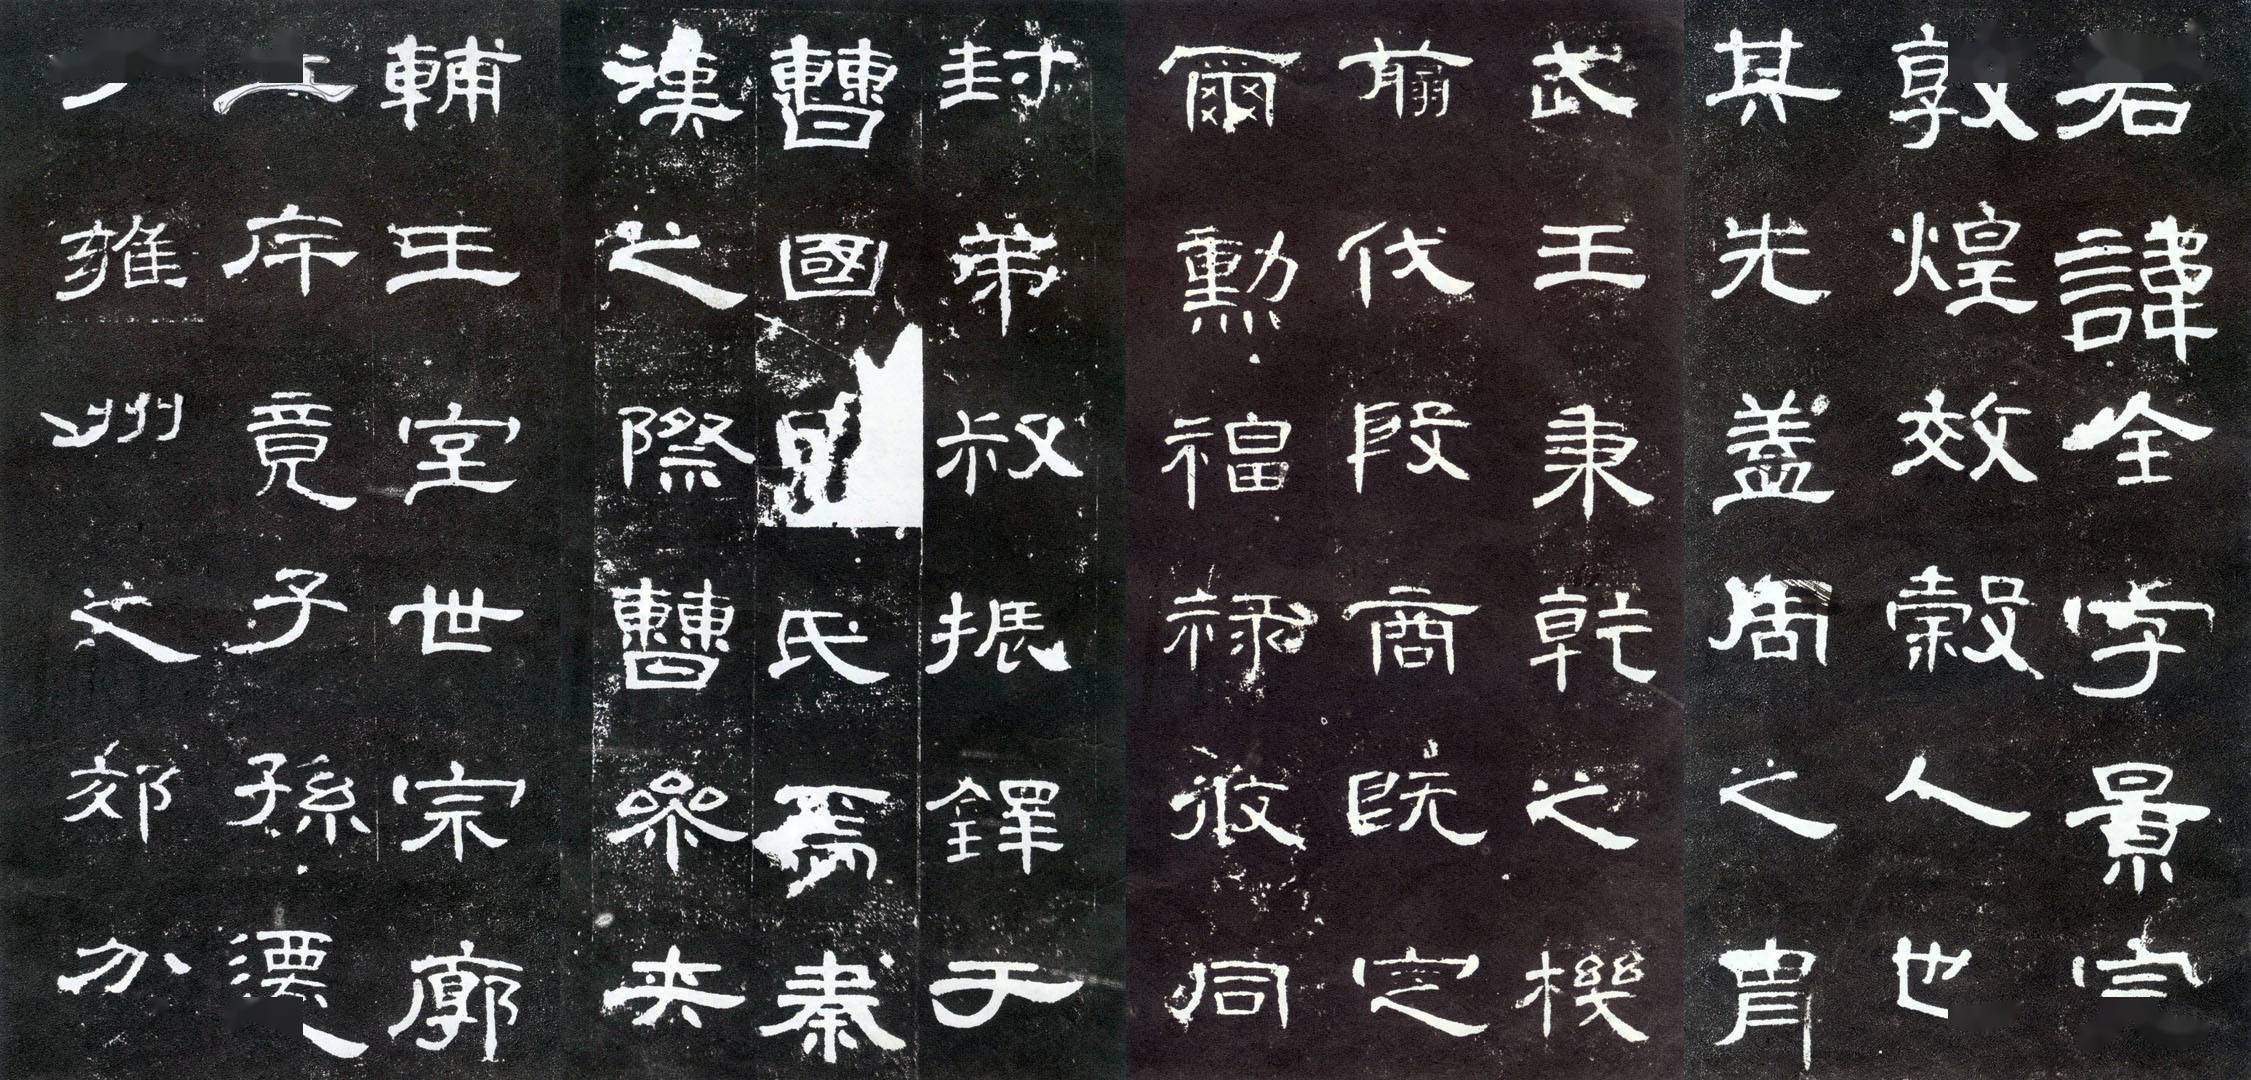 諱全字景
敦煌效穀人也
其先蓋周之胄
武王秉乾之機
翦伐殷商既定
爾勳福祿攸同
封弟叔振鐸于
曹國氏焉秦
漢之際曹參夾
輔王室世宗廓
斥竟子孫遷
雍州之郊分